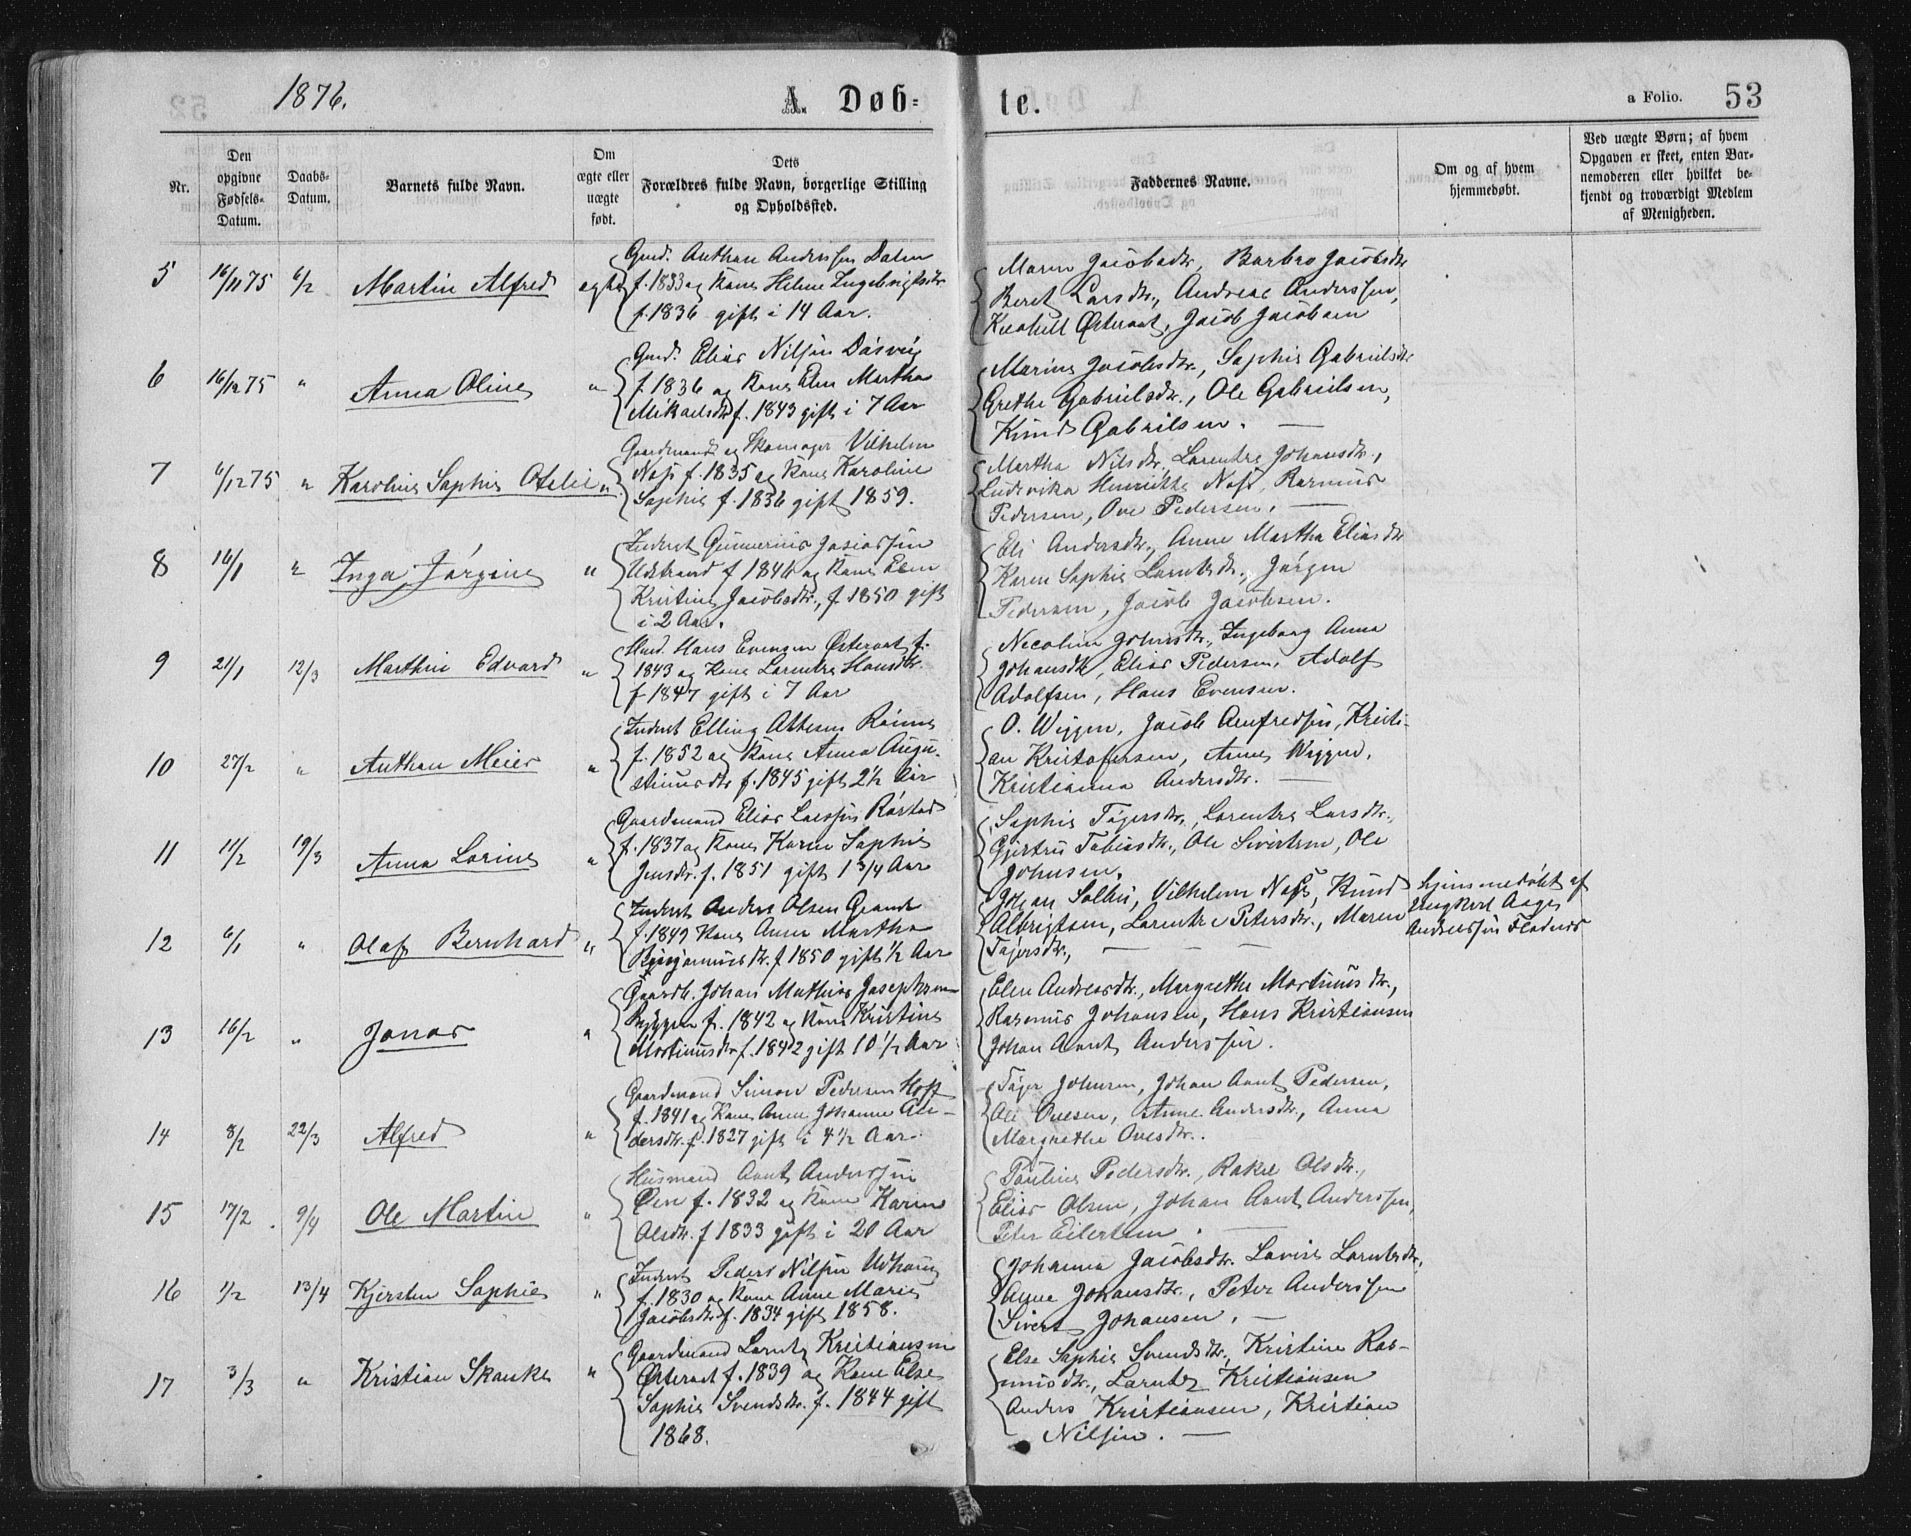 1876.
A. Døb-
te.
a Folio. 53
Nr.
Den opgivne Fødsels-Datum.
Daabs-Datum.
Barnets fulde Navn.
Om ægte eller uægte født.
Dets
Forældres fulde Navn, borgerlige Stilling
og Opholdssted.
Faddernes Navne.
Om og af hvem
hjemmedøbt.
Ved uægte Børn; af hvem
Opgaven er skeet, enten Bar-
nemoderen eller hvilket be-
kjendt og troværdigt Medlem
af Menigheden.
5 16/11 75 6/2 Martin Alfred ægte
Gmd. Anthon Anderssen Dalen
f. 1833 og Kone Heline Ingebrigtsdtr
f. 1836 gift i 14 Aar.
Maren Jacobsdtr, Barbro Jacobsdtr
Beret Larsdtr., Andreas Anderssen,
Østeraat, Jacob Jacobsen
6 16/12 75 " Anna Oline "
Gmd. Elias Nilssen Dasvig
f. 1836 og Kone Elen Martha
Mikaelsdtr f. 1843 gift i 7 Aar
Marius Jacobsdtr., Sophie Gabrielsdtr
Grethe Gabrielsdtr., Ole Gabrielsen,
Knud Gabrielsen. —
7 6/12 75 " Karoline Sophie Otelie "
Gaardmand og Skomager Vilhelm
Nøss f. 1835 og Kone Karoline
Sophie f. 1836 gift 1859.
Martha Nilsdtr, Larentze Johansdtr.,
Ludevika Henriette Nøss, Rasmus
Pedersen, Ove Pedersen. —
8 16/1 " Inga Jørgine "
Inderst Gunnerius Josiassen
Udstrand f 1846 og Kone Elen
Kristine Jacobsdtr., f. 1850 gift
i 2 Aar.
Eli Andersdtr., Anne Martha Eliasdtr
Karen Sophie Larntsdtr., Jørgen
Pedersen, Jacob Jacobsen.
9 21/1 12/3 Marthin Edvard "
Hmd. Hans Evensen Østeraat f.
1843 og Kone Larentze Hansdtr.
f 1847 gift i 7 Aar
Necoline Johnsdtr., Ingeborg Anna
Johansdtr, Elias Pedersen, Adolf
Adolfsen, Hans Evensen.
10 27/2 " Anthon Meier "
Inderst Elling Ottesen Rønne
f. 1852 og Kone Anna Augu-
stinusdtr f. 1845 gift 2½ Aar
O. Wiggen, Jacob Arnfredsen, Kristi-
an Kristofersen, Anne Wiggen,
Kristianna Andersdtr. —
11 11/2 19/3 Anna Lorine "
Gaardmand Elias Larssen Røstad
f. 1837 og Kone Karen Sophie
Jensdtr. f. 1851 gift 1 3/4 Aar
Sophie Tøgersdtr., Larentze Larsdtr.,
Gjertru Tobiasdtr., Ole Sivertsen, Ole
Johnsen.
12 6/1 " Olaf Bernhard "
Inderst Anders Olsen Grande
f. 1849 Kone Anne Martha
Benjaminsdtr. f 1850 gift ½ Aar
Johan Solbu, Vilhelm Nøss, Knud
Albrigtsen, Larentze Petersdtr., Maren
Tøgersdtr., — — —
hjemmedøbt af
Ungkarl Aage
Anderssen Flatnes
13 16/2 " Jonas "
Gaardb. Johan Mathias Josephsen
f. 1842 og Kone Kristine
Mortinusdtr f. 1842 gift 10½ Aar
Elen Andreasdtr., Margrethe Martinusdtr.,
Rasmus Johansen, Hans Kristiansen
Johan Arnt Anderssen.
14 8/2 22/3 Alfred "
Gaardmand Simon Pedersen Hoff
f. 1841 og Kone Anne Johanna An-
dersdtr. f. 1827 gift i 4½ Aar.
Tøger Johnsen, Johan Arnt Pedersen,
Ole Ovesen, Anne Andersdtr., Anna
Margrethe Ovesdtr.
15 17/2 9/4 Ole Martin "
Husmand Arnt Anderssen
Øien f. 1832 og Kone Karen
Olsdtr. f 1833 gift i 20 Aar
Pauline Pedersdtr., Rakel Olsdtr.,
Elias Olsen, Johan Arnt Anderssen,
Peter Eilertsen. —
16 1/2 13/4 Kjersten Sophie "
Inderst Peder Nilssen Udhaug
f. 1830 og Kone Anne Marie
Jacobsdtr. f. 1834 gift 1858.
Johanna Jacobsdtr. Lovise Larntsdtr.,
Anne Johansdtr., Peter Anderssen
Sivert Johansen. —
17 3/3 " Kristian Skanke "
Gaardmand Larntz Kristiansen
Østeraat f. 1839 og Kone Else
Sophie Svendsdtr. f. 1844 gift
1868.
Else Sophie Svendsdtr., Kristine Ras-
musdtr., Larntz Kristiansen
Anders Kristiansen, Kristian
Nilssen. —